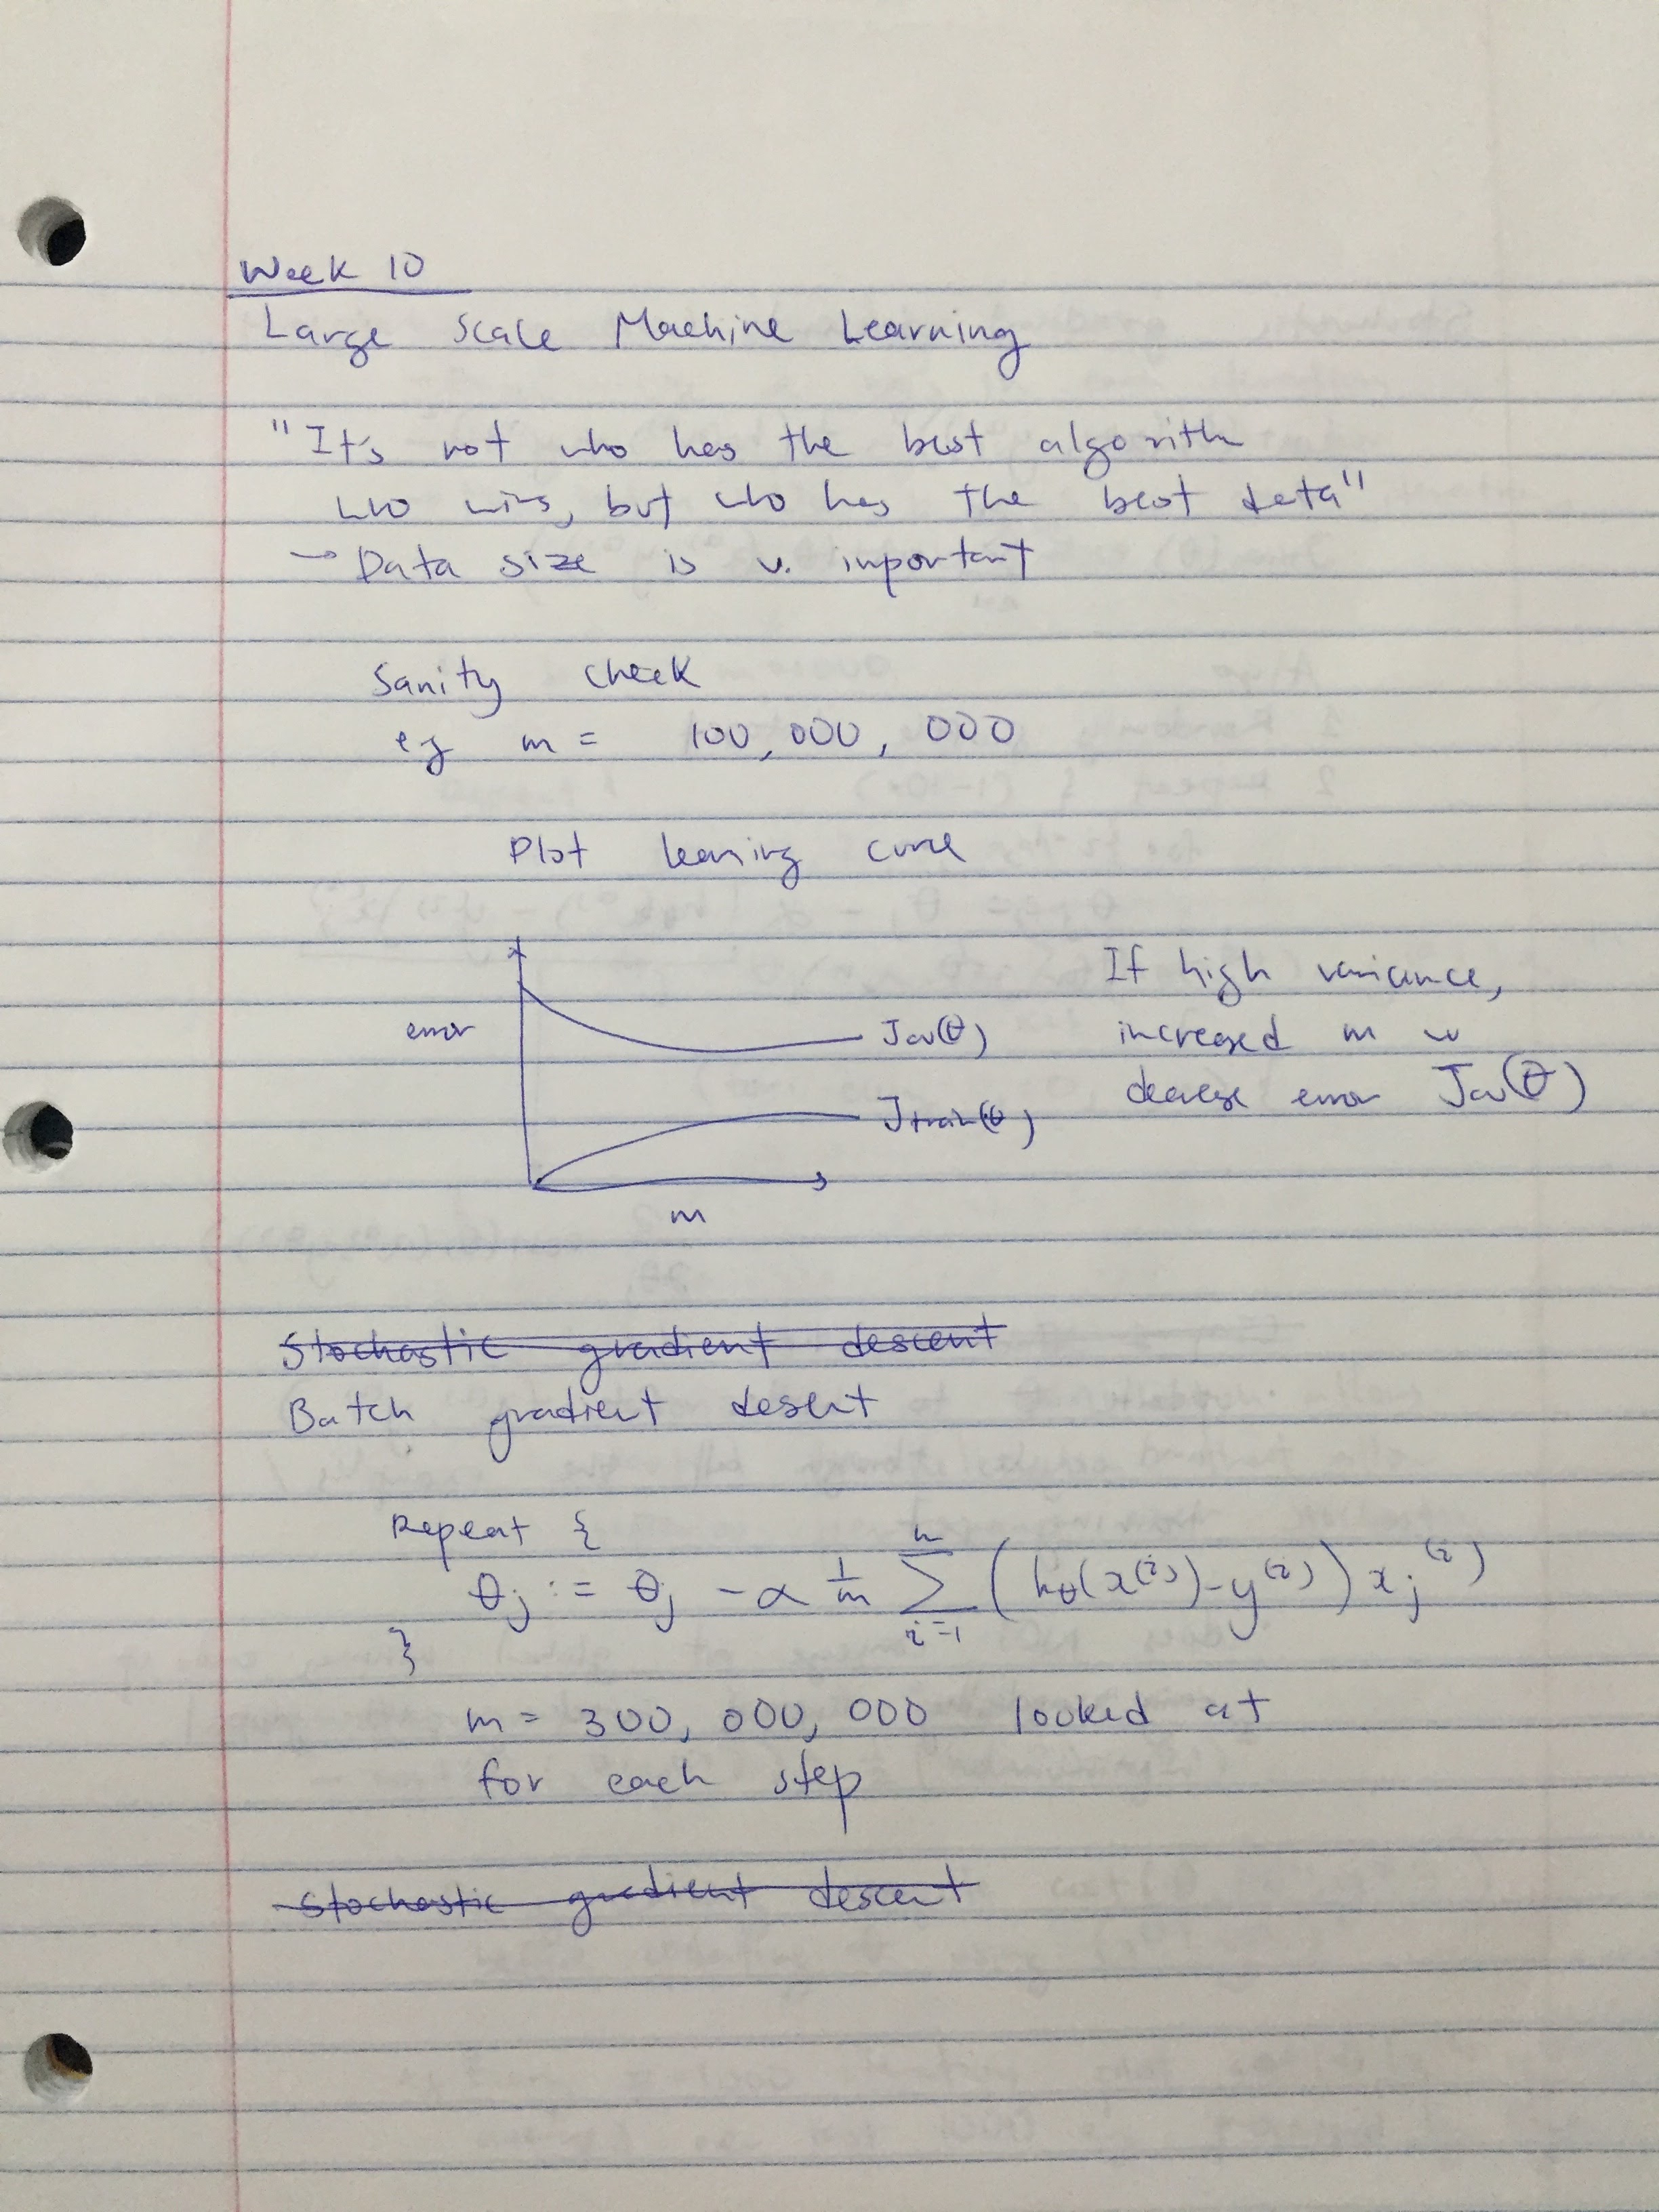 Week 10
Large Scale Machine Learning
"It's not who has the best algorithm
who wins, but who has the best data"
→ Data size is v. important
Sanity check
eg m = 100,000,000
Plot learning curve
error
Jcv(θ)
Jtrain(θ)
m
If high variance,
increased m w
decrease error Jcv(θ)
Stochastic gradient descent
Batch gradient desent
Repeat {
θj := θj - α 1/m Σ i=1 m (hθ(x^(i)) - y^(i)) xj^(i)
}
m = 300,000,000 looked at
for each step
Stochastic gradient descent